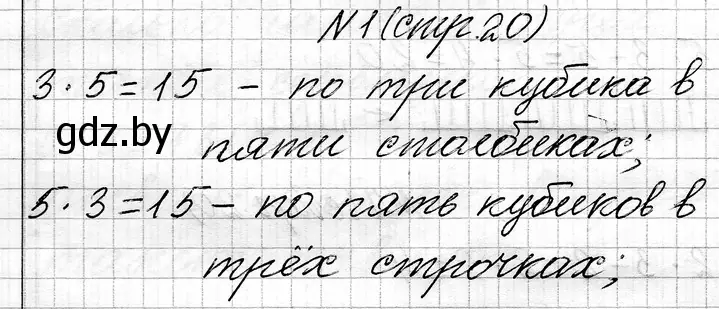 N1(стр.20)
3·5=15 - по три кубика в
gdz.by
пяти столбиках;
5·3=15 - по пять кубиков в
трёх строчках;